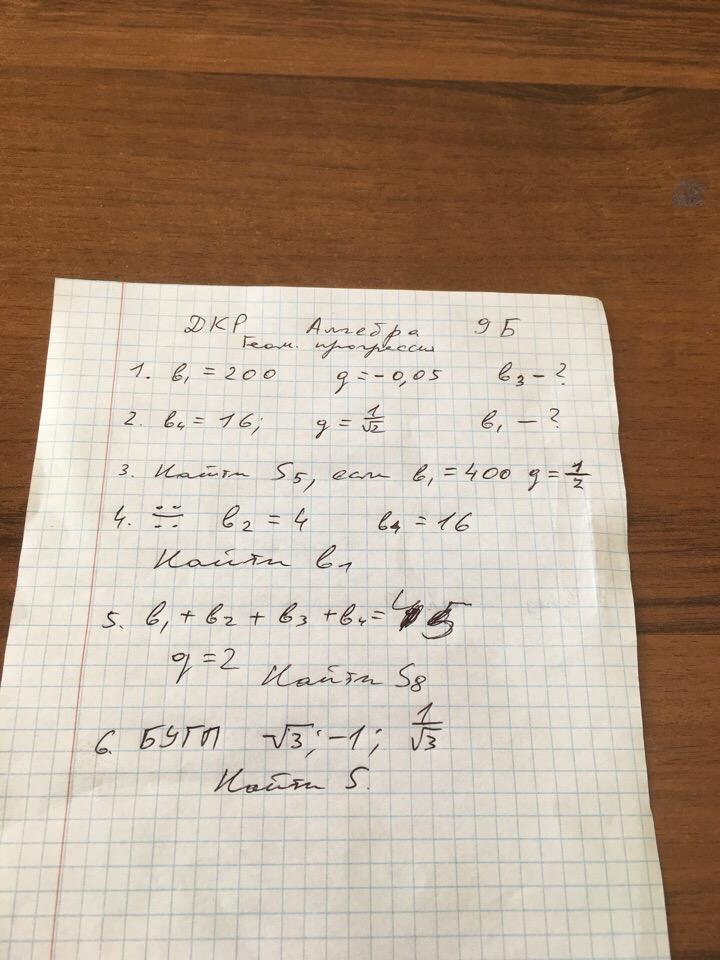 ДКР Алгебра 9Б
Геом. прогрессия
1. в₁ = 200 q = -0,05 в₃ - ?
2. в₄ = 16; q = 1/√2 в₁ - ?
3. Найти S₅, если в₁ = 400 q = 1/2
4. ÷÷ в₂ = 4 в₄ = 16
Найти в₁
5. в₁ + в₂ + в₃ + в₄ = 45
q = 2 Найти S₈
6. БУГП √3; -1; 1/√3
Найти S.